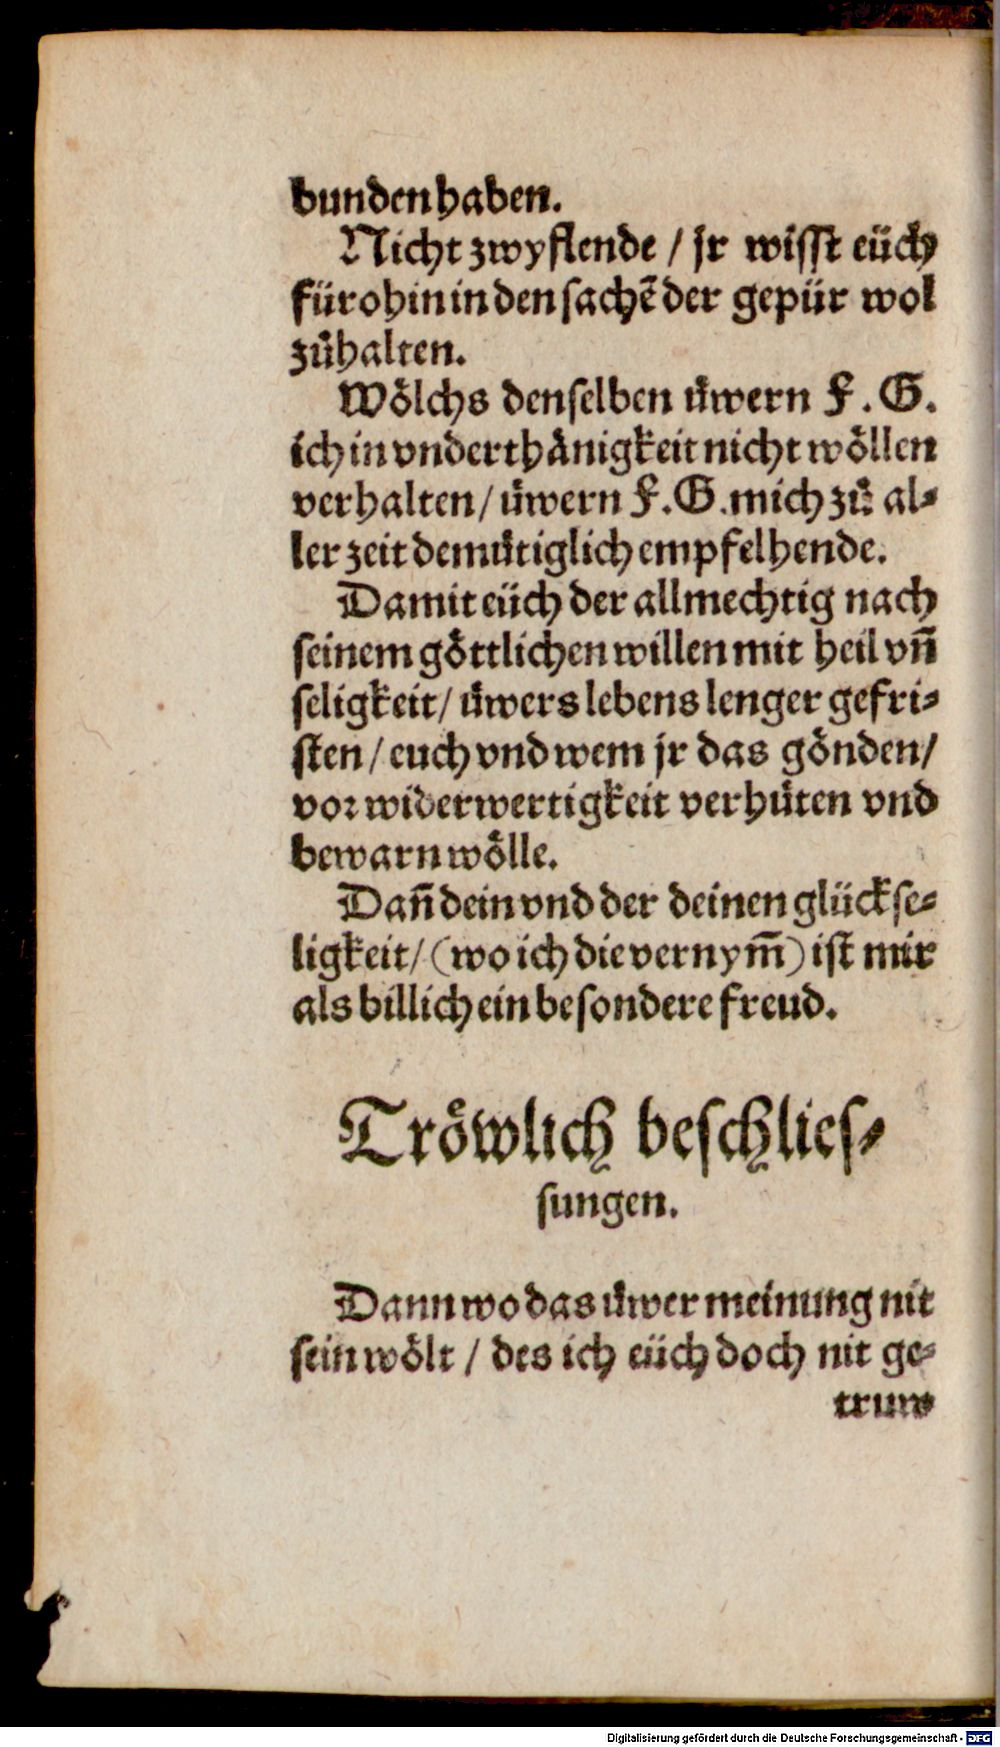 bunden haben.
Nicht zwyflende / jr wisst eüch
fürohin in den sachē der gepür wol
zůhalten.
Wölchs denselben üwern F. G.
ich in vnderthänigkeit nicht wöllen
verhalten / üwern F. G. mich zů al⸗
ler zeit demütiglich empfelhende.
Damit eüch der allmechtig nach
seinem göttlichen willen mit heil vñ
seligkeit / üwers lebens lenger gefri⸗
sten / euch vnd wem jr das gönden /
vor widerwertigkeit verhüten vnd
bewarn wölle.
Dañ dein vnd der deinen glückse⸗
ligkeit / (wo ich die vernym̄) ist mir
als billich ein besondere freud.
Tröwlich beschlies⸗
sungen.
Dann wo das üwer meinung nit
sein wölt / des ich eüch doch nit ge⸗
truw
Digitalisierung gefördert durch die Deutsche Forschungsgemeinschaft - DFG